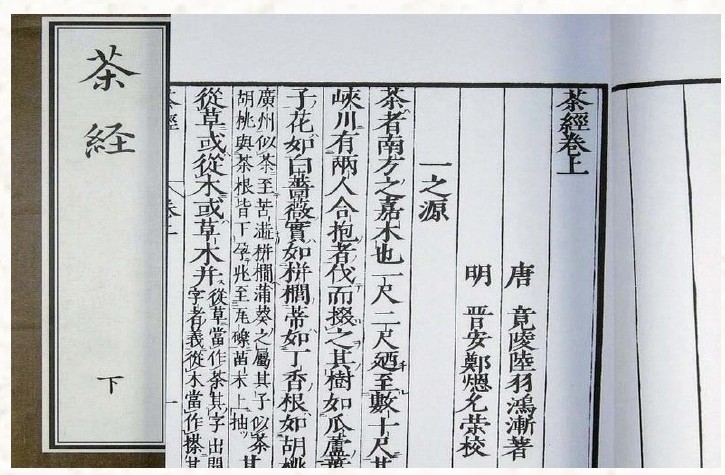 茶経
下
茶經卷上
唐 竟陵陸羽鴻漸著
明 晉安鄭熜允榮校
一之源
茶者南方之嘉木也一尺二尺廼至數十尺其
峽川有兩人合抱者伐而掇之其樹如瓜蘆葉
子花如白薔薇實如栟櫚蒂如丁香根如胡桃
廣州似茶至苦澁栟櫚蒲葵之屬其子似茶其
胡桃與茶根皆下孕兆至瓦礫苗木上抽
從草或從木或草木并
從草當作茶其字出開
字者義從木當作㮈其
茶經
卷上
一